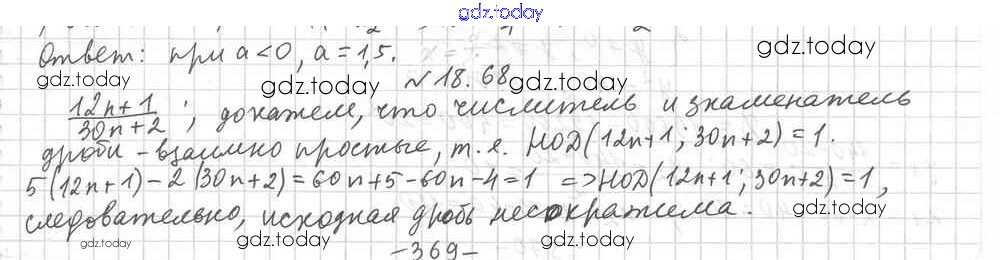 gdz.today
Ответ: при a<0, a=1,5.
gdz.today
gdz.today gdz.today
№18.68
12n+1/30n+2 ; докажем, что числитель и знаменатель
gdz.today
дроби – взаимно простые, т.е. НОД(12n+1; 30n+2)=1.
5(12n+1)-2(30n+2)=60n+5-60n-4=1 =>НОД(12n+1; 30n+2)=1,
gdz.today gdz.today gdz.today
следовательно, исходная дробь несократима.
gdz.today gdz.today gdz.today
-369-